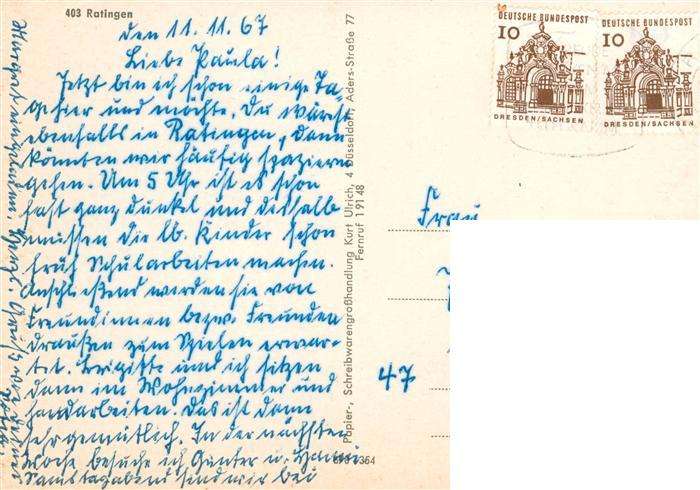 403 Ratingen
den 11.11.67
Liebe Paula!
Jetzt bin ich schon einige Ta-
ge hier und möchte, Du wärst
ebenfalls in Ratingen, dann
könnten wir häufig spazieren
gehen. Um 5 Uhr ist es schon
fast ganz dunkel und deshalb
müssen die lb. Kinder schon
früh Schularbeiten machen.
Anschließend werden sie von
Freundinnen bezw. Freunden
draußen zum Spielen erwar-
tet. Brigitte und ich sitzen
dann im Wohnzimmer und
handarbeiten. Das ist dann
sehr gemütlich. In der nächsten
Woche besuche ich Günter u.
Samstagabend sind wir bei
Papier-, Schreibwarengroßhandlung Kurt Ulrich, 4 Düsseldorf, Aders-Straße 77
Fernruf 1 91 48
DEUTSCHE BUNDESPOST
10
DRESDEN/SACHSEN
DEUTSCHE BUNDESPOST
10
DRESDEN/SACHSEN
Frau
47